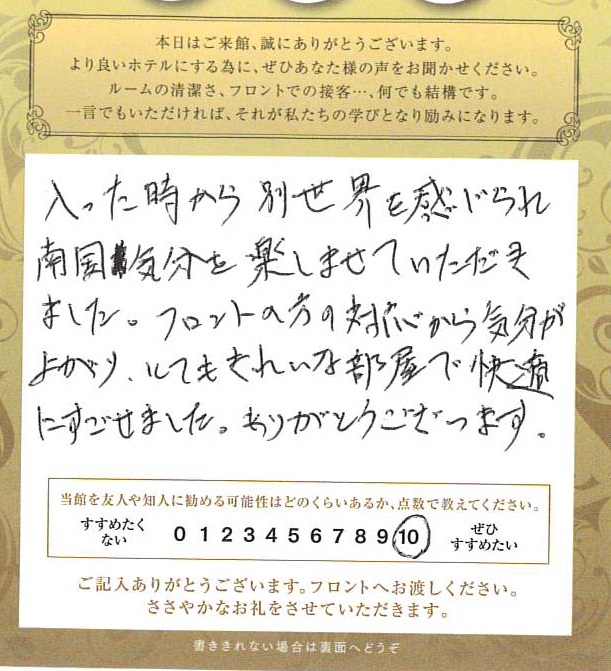 本日はご来館、誠にありがとうございます。
より良いホテルにする為に、ぜひあなた様の声をお聞かせください。
ルームの清潔さ、フロントでの接客…、何でも結構です。
一言でもいただければ、それが私たちの学びとなり励みになります。
入った時から別世界を感じられ
南国気分を楽しませていただき
ました。フロントの方の対応から気分が
よがり、とてもきれいな部屋で快適
にすごせました。ありがとうございます。
当館を友人や知人に勧める可能性はどのくらいあるか、点数で教えてください。
すすめたくない 0 1 2 3 4 5 6 7 8 9 10 ぜひすすめたい
ご記入ありがとうございます。フロントへお渡しください。
ささやかなお礼をさせていただきます。
書ききれない場合は裏面へどうぞ